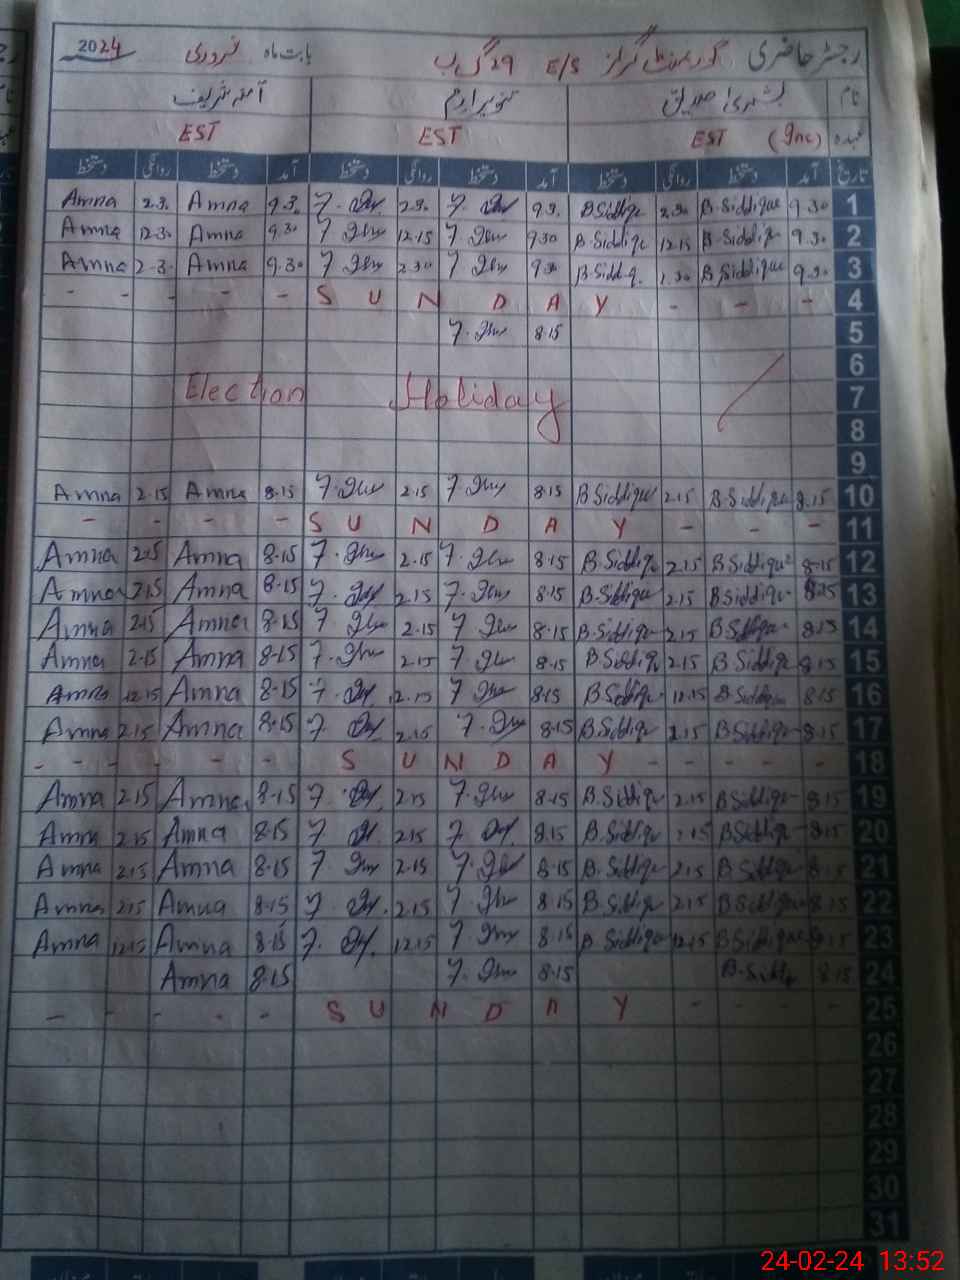 رجسٹر حاضری گورنمنٹ گرلز E/S 29 گ ب بابت ماہ فروری 2024
نام بشریٰ صدیق تنویر ارم آمنہ شریف
عہدہ EST (Inc) EST EST
تاریخ آمد دستخط روانگی دستخط آمد دستخط روانگی دستخط آمد دستخط روانگی دستخط
1 9.30 B.Siddique 2.30 B.Siddique 9.30 2.30 9.30 Amna 2.30 Amna
2 9.30 B.Siddique 12.15 B.Siddique 9.30 12.15 9.30 Amna 12.30 Amna
3 9.30 B.Siddique 1.30 B.Siddique 9.30 2.30 9.30 Amna 2.30 Amna
4 - - - S U N D A Y - - - -
5 8.15
6
7 Election Holiday
8
9
10 8.15 B.Siddique 2.15 B.Siddique 8.15 2.15 8.15 Amna 2.15 Amna
11 - - - S U N D A Y - - - -
12 8.15 B.Siddique 2.15 B.Siddique 8.15 2.15 8.15 Amna 2.15 Amna
13 8.15 B.Siddique 2.15 B.Siddique 8.15 2.15 8.15 Amna 2.15 Amna
14 8.15 B.Siddique 2.15 B.Siddique 8.15 2.15 8.15 Amna 2.15 Amna
15 8.15 B.Siddique 2.15 B.Siddique 8.15 2.15 8.15 Amna 2.15 Amna
16 8.15 B.Siddique 12.15 B.Siddique 8.15 8.15 Amna 12.15 Amna
17 8.15 B.Siddique 2.15 B.Siddique 8.15 2.15 8.15 Amna 2.15 Amna
18 - - - - S U N D A Y - - - - - -
19 8.15 B.Siddique 2.15 B.Siddique 8.15 2.15 8.15 Amna 2.15 Amna
20 8.15 B.Siddique 2.15 B.Siddique 8.15 2.15 8.15 Amna 2.15 Amna
21 8.15 B.Siddique 2.15 B.Siddique 8.15 2.15 8.15 Amna 2.15 Amna
22 8.15 B.Siddique 2.15 B.Siddique 8.15 2.15 8.15 Amna 2.15 Amna
23 8.15 B.Siddique 12.15 B.Siddique 8.15 12.15 8.15 Amna 12.15 Amna
24 8.15 8.15 8.15 Amna
25 - - - S U N D A Y - - - - -
26
27
28
29
30
31
24-02-24 13:52